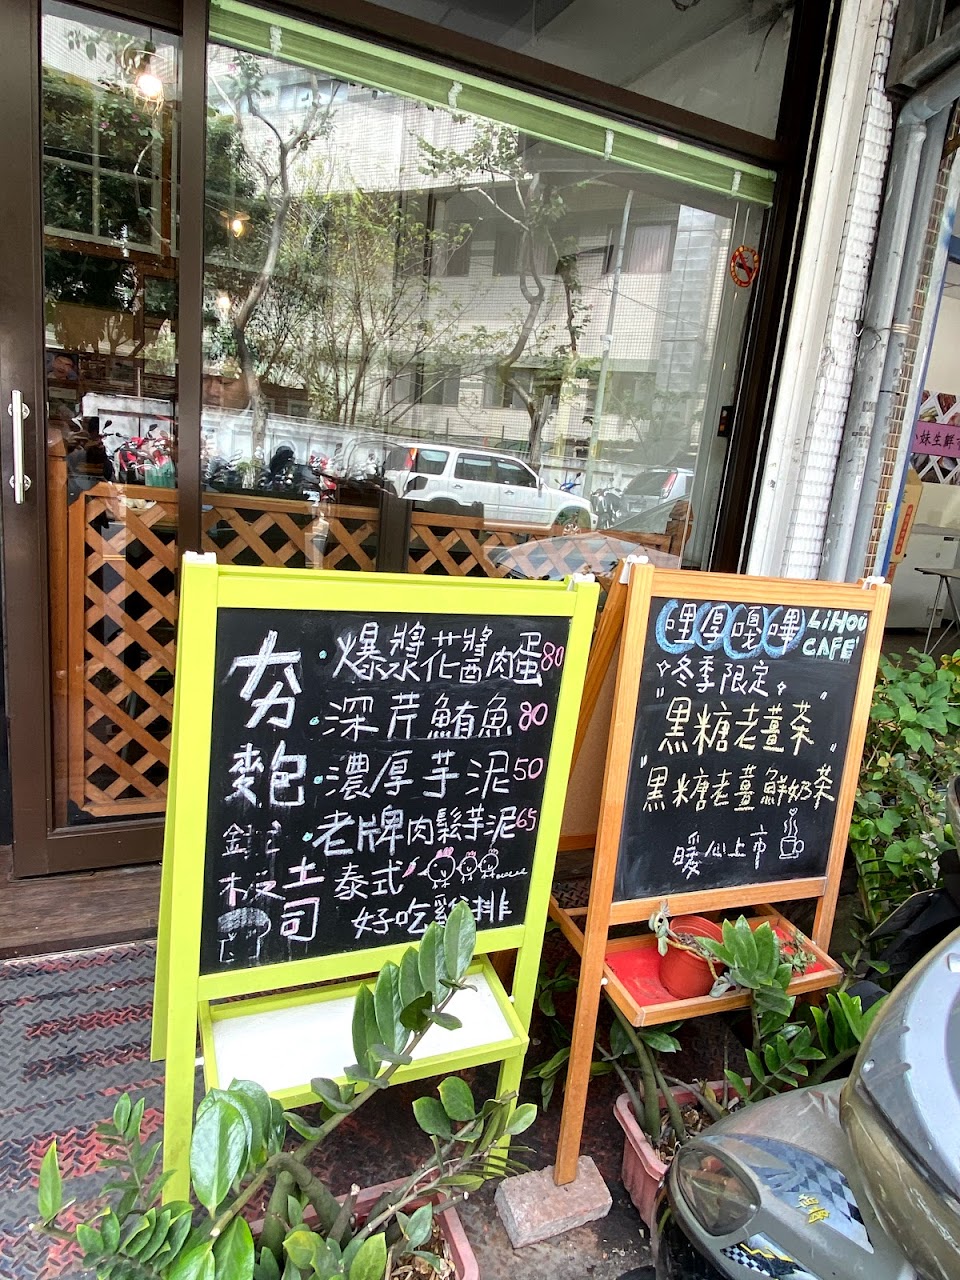 夯
麵包
土司
爆漿花醬肉蛋80
深芹鮪魚80
濃厚芋泥50
老牌肉鬆芋泥65
泰式
好吃雞排
哩厚嘎嗶 LiHOU
CAFE'
冬季限定
"黑糖老薑茶"
"黑糖老薑鮮奶茶
暖心上市
妹生鮮